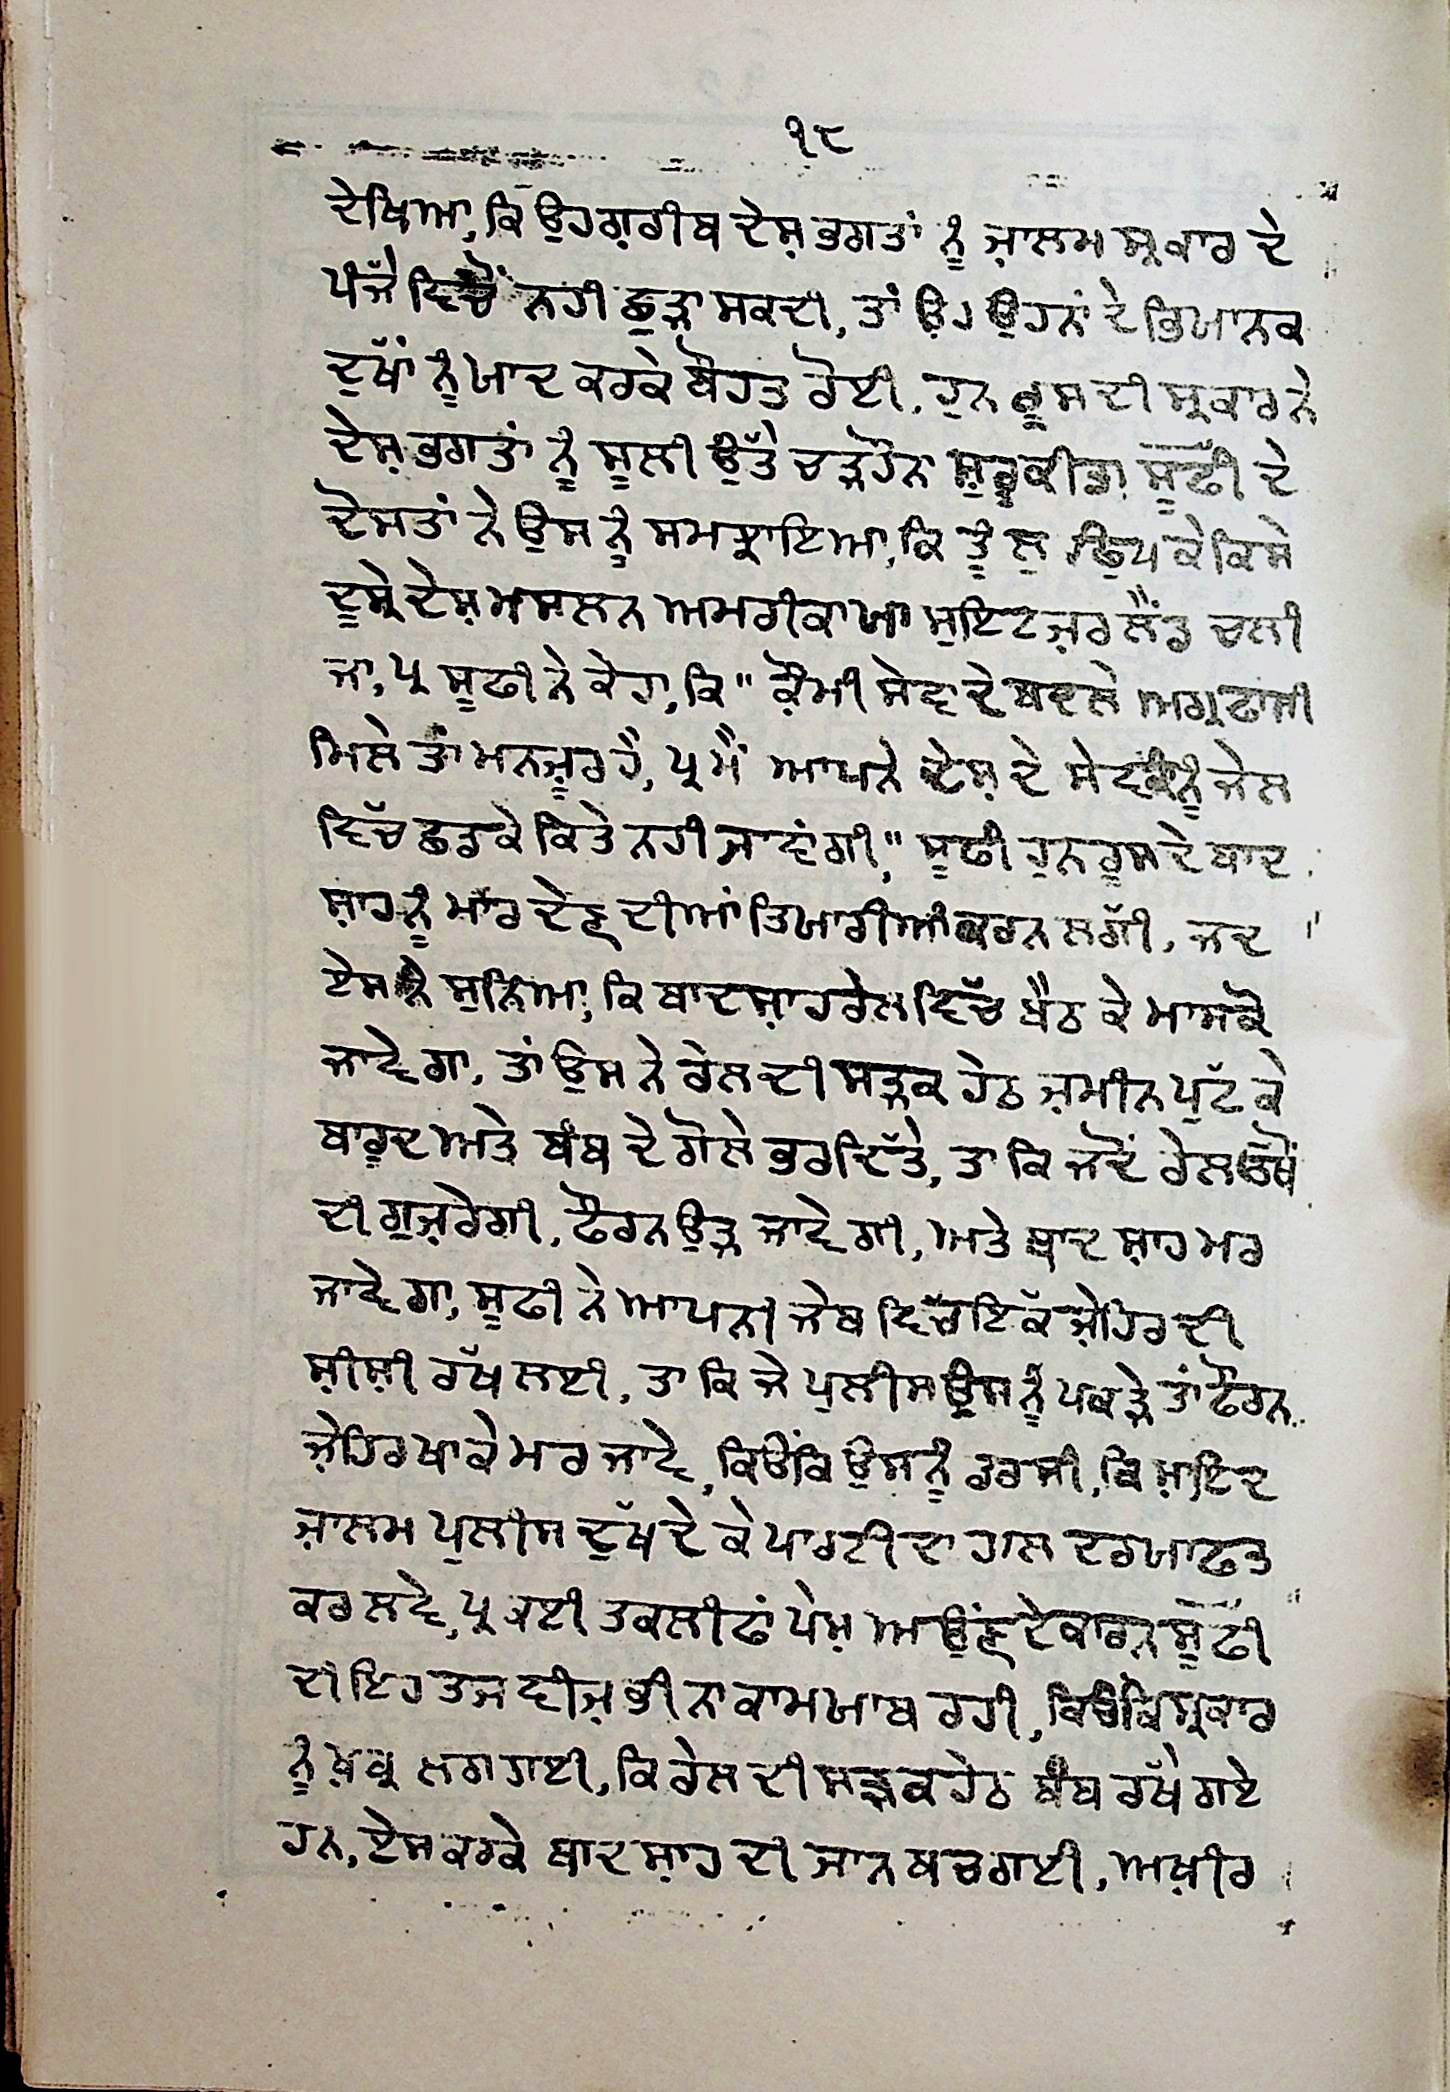 ੧੮
ਦੇਖਿਆ, ਕਿ ਉਹ ਗ਼ਰੀਬ ਦੇਸ਼ ਭਗਤਾਂ ਨੂੰ ਜ਼ਾਲਮ ਸ੍ਰਕਾਰ ਦੇ
ਪੰਜੇ ਵਿਚੋਂ ਨਹੀ ਛੁੜਾ ਸਕਦੀ, ਤਾਂ ਉਹ ਉਹਨਾਂ ਦੇ ਭਿਯਾਨਕ
ਦੁਖਾਂ ਨੂੰ ਯਾਦ ਕਰਕੇ ਬੌਹਤ ਰੋਈ, ਹੁਨ ਰੂਸ ਦੀ ਸ੍ਰਕਾਰ ਨੇ
ਦੇਸ਼ ਭਗਤਾਂ ਨੂੰ ਸੂਲੀ ਉੱਤੇ ਚੜ੍ਹੌਨਾ ਸ਼ੁਰੂ ਕੀਤਾ ਸੂਫੀ ਦੇ
ਦੋਸਤਾਂ ਨੇ ਉਸ ਨੂੰ ਸਮਝਾਇਆ, ਕਿ ਤੂੰ ਲੁ ਛਿਪ ਕੇ ਕਿਸੇ
ਦੂਸ੍ਰੇ ਦੇਸ਼ ਮਸਲਨ ਅਮਰੀਕਾ ਯਾ ਸੁਇਟਜ਼ਰਲੈਂਡ ਚਲੀ
ਜਾ, ਪ੍ਰ ਸੂਫੀ ਨੇ ਕੇਹਾ, ਕਿ "ਕੌਮੀ ਸੇਵਾ ਦੇ ਬਦਲੇ ਅਗ੍ਰ ਫਾਂਸੀ
ਮਿਲੇ ਤਾਂ ਮਨਜ਼ੂਰ ਹੈ, ਪ੍ਰ ਮੈਂ ਆਪਨੇ ਦੇਸ਼ ਦੇ ਸੇਵਕਾਂ ਨੂੰ ਜੇਲ
ਵਿੱਚ ਛਡਕੇ ਕਿਤੇ ਨਹੀ ਜਾਵਾਂਗੀ," ਸੂਫੀ ਹੁਨ ਰੂਸ ਦੇ ਬਾਦ
ਸ਼ਾਹ ਨੂੰ ਮਾਰ ਦੇਣ ਦੀਆਂ ਤਿਯਾਰੀਆਂ ਕਰਨ ਲਗੀ, ਜਦ
ਏਸ ਨੇ ਸੁਨਿਆ, ਕਿ ਬਾਦਸ਼ਾਹ ਰੇਲ ਵਿੱਚ ਬੈਠ ਕੇ ਮਾਸਕੋ
ਜਾਵੇਗਾ, ਤਾਂ ਉਸ ਨੇ ਰੇਲ ਦੀ ਸੜਕ ਹੇਠ ਜ਼ਮੀਨ ਪੁੱਟ ਕੇ
ਬਾਰੂਦ ਅਤੇ ਬੰਬ ਦੇ ਗੋਲੇ ਭਰ ਦਿੱਤੇ, ਤਾ ਕਿ ਜਦੋਂ ਰੇਲ ਓਥੋਂ
ਦੀ ਗੁਜ਼ਰੇਗੀ, ਫੌਰਨ ਉੜ ਜਾਵੇਗੀ, ਅਤੇ ਬਾਦ ਸ਼ਾਹ ਮਰ
ਜਾਵੇਗਾ, ਸੂਫੀ ਨੇ ਆਪਨੀ ਜੇਬ ਵਿੱਚ ਇਕ ਜ਼ੇਹਿਰ ਦੀ
ਸ਼ੀਸ਼ੀ ਰੱਖ ਲਈ, ਤਾ ਕਿ ਜੇ ਪੁਲੀਸ ਉਸ ਨੂੰ ਪਕੜੇ ਤਾਂ ਫੌਰਨ
ਜ਼ੇਹਿਰ ਖਾਕੇ ਮਰ ਜਾਵੇ, ਕਿਓਂਕਿ ਉਸ ਨੂੰ ਡਰ ਸੀ, ਕਿ ਸ਼ਾਇਦ
ਜ਼ਾਲਮ ਪੁਲੀਸ ਦੁੱਖ ਦੇ ਕੇ ਪਾਰਟੀ ਦਾ ਹਾਲ ਦਰਯਾਫਤ
ਕਰ ਲਵੇ, ਪ੍ਰ ਕਈ ਤਕਲੀਫਾਂ ਪੇਸ਼ ਆਉਣ ਦੇ ਕਾਰਨ ਸੂਫੀ
ਦੀ ਇਹ ਤਜਵੀਜ਼ ਭੀ ਨਾਕਾਮਯਾਬ ਰਹੀ, ਕਿਓਂਕਿ ਸ੍ਰਕਾਰ
ਨੂੰ ਖ਼ਬ੍ਰ ਲਗ ਗਈ, ਕਿ ਰੇਲ ਦੀ ਸੜਕ ਹੇਠ ਬੰਬ ਰਖੇ ਗਏ
ਹਨ, ਏਸ ਕਰਕੇ ਬਾਦ ਸ਼ਾਹ ਦੀ ਜਾਨ ਬਚ ਗਈ, ਅਖ਼ੀਰ